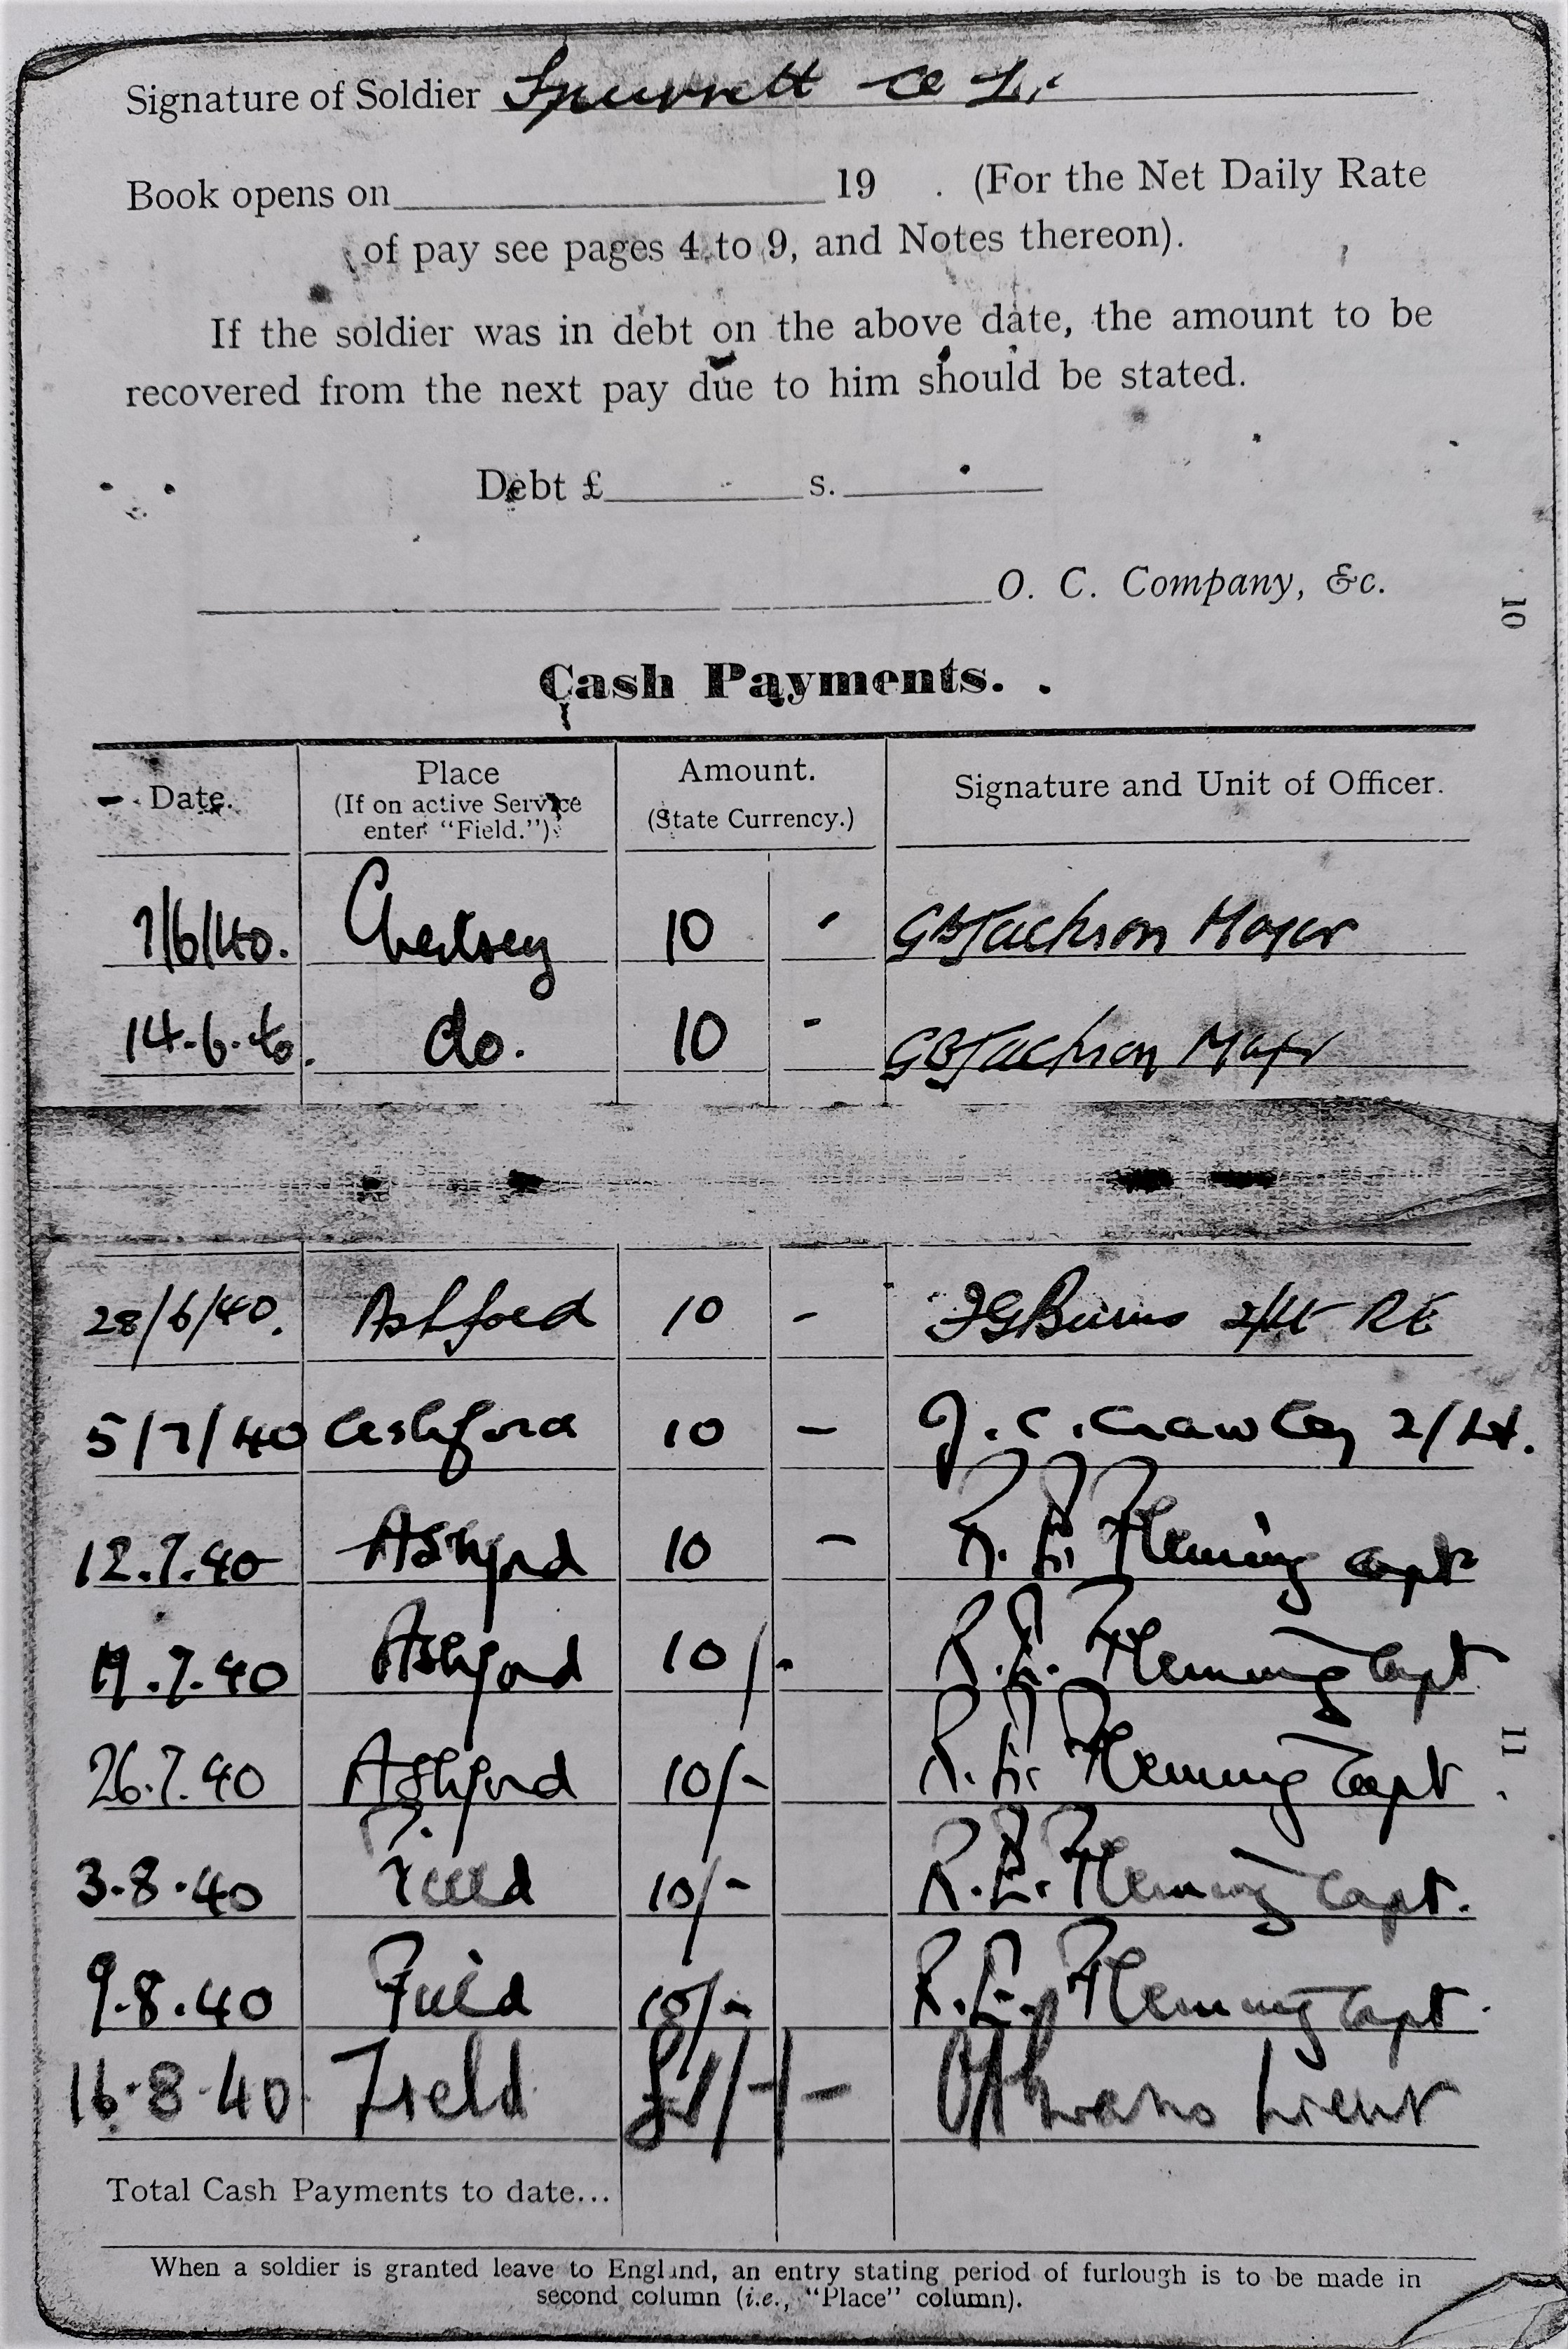 Signature of Soldier Spurrett
Book opens on 19 . (For the Net Daily Rate
of pay see pages 4 to 9, and Notes thereon).
If the soldier was in debt on the above date, the amount to be
recovered from the next pay due to him should be stated.
Debt £ s.
O. C. Company, &c.
10
Cash Payments.
Date. Place Amount. Signature and Unit of Officer.
(If on active Service (State Currency.)
enter "Field.")
7/6/40. Chertsey 10 - GBJackson Major
14.6.40. do. 10 - GBJackson Major
28/6/40. Ashford 10 - Burns 2/Lt RE
5/7/40 Ashford 10 - J.C. Crawley 2/Lt.
12.7.40 Ashford 10 - R.E. Fleming Capt
19.7.40 Ashford 10/- R.E. Fleming Capt
26.7.40 Ashford 10/- R.E. Fleming Capt
11
3.8.40 Field 10/- R.E. Fleming Capt.
9.8.40 Field 10/- R.E. Fleming Capt.
16.8.40 Field Lieut
Total Cash Payments to date...
When a soldier is granted leave to England, an entry stating period of furlough is to be made in
second column (i.e., "Place" column).